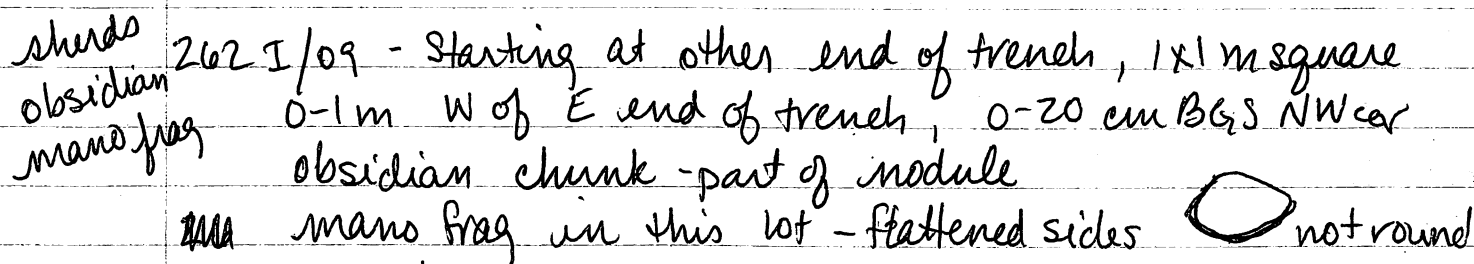 sherds
obsidian
mano frag
262 I/09 - Starting at other end of trench, 1x1 m square
0-1m W of E end of trench, 0-20 cm BGS NW cor
obsidian chunk - part of nodule
mano frag in this lot - flattened sides not round